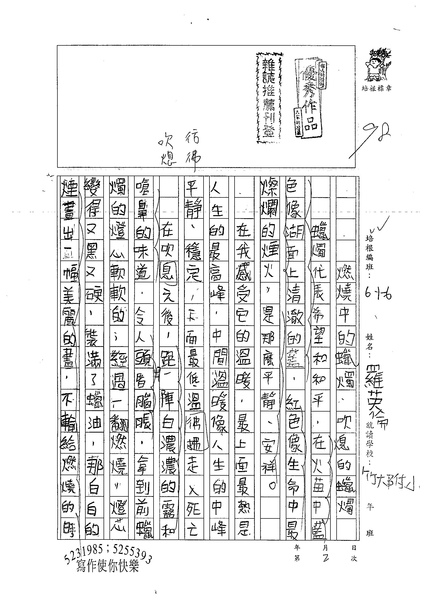 培根標章
優秀作品
雜誌推薦刊登
98
彷彿
吹熄
培根編班：
6-1-6
姓名：
就讀學校：
年
班
年
月
日
第
2
次
燃燒中的蠟燭．吹熄的蠟燭
蠟燭代表希望和和平，在火苗中藍
色像湖面上清澈的藍，紅色像生命中最
燦爛的煙火，是那麼平靜、安祥。
在我感受它的溫暖，最上面最熱是
人生的最高峰，中間溫暖像人生的中峰
平靜、穩定，下面最低溫彿彷走入死亡
在吹息之後，跑一陣白濃濃的霧和
嗆鼻的味道，令人頭昏腦脹，拿到前蠟
燭的燈心軟軟的；經過一翻燃燒，燈芯
變得又黑又硬，裝滿了蠟油，那白白的
煙畫出一幅美麗的畫，不輸給燃燒的時
5231985；5255393
寫作使你快樂